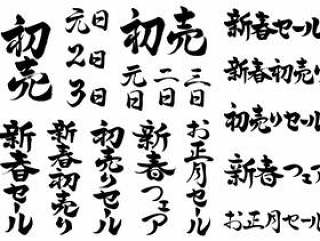 初売
元日
2日
3日
初売
元日
二日
三日
新春セール
新春初売り
初売りセール
新春フェア
お正月セール
新春セール
新春初売り
初売りセール
新春フェア
お正月セール